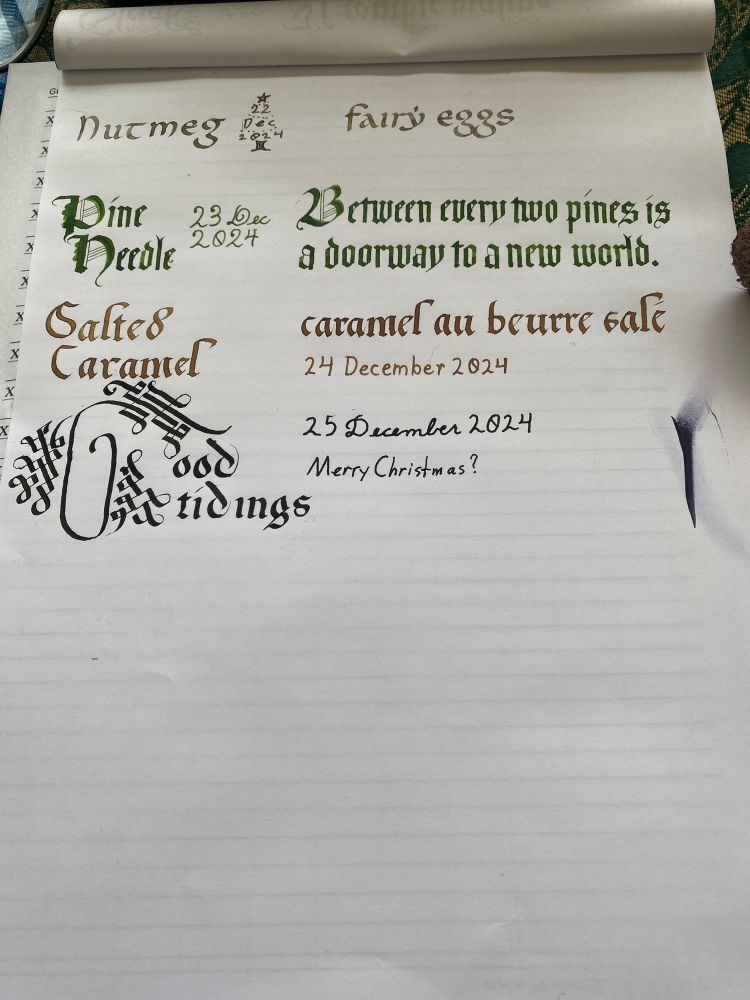 Nutmeg
22
Dec
2024
fairy eggs
Pine
Needle
23 Dec
2024
Between every two pines is
a doorway to a new world.
Salted
Caramel
caramel au beurre salé
24 December 2024
Good
tidings
25 December 2024
Merry Christmas?